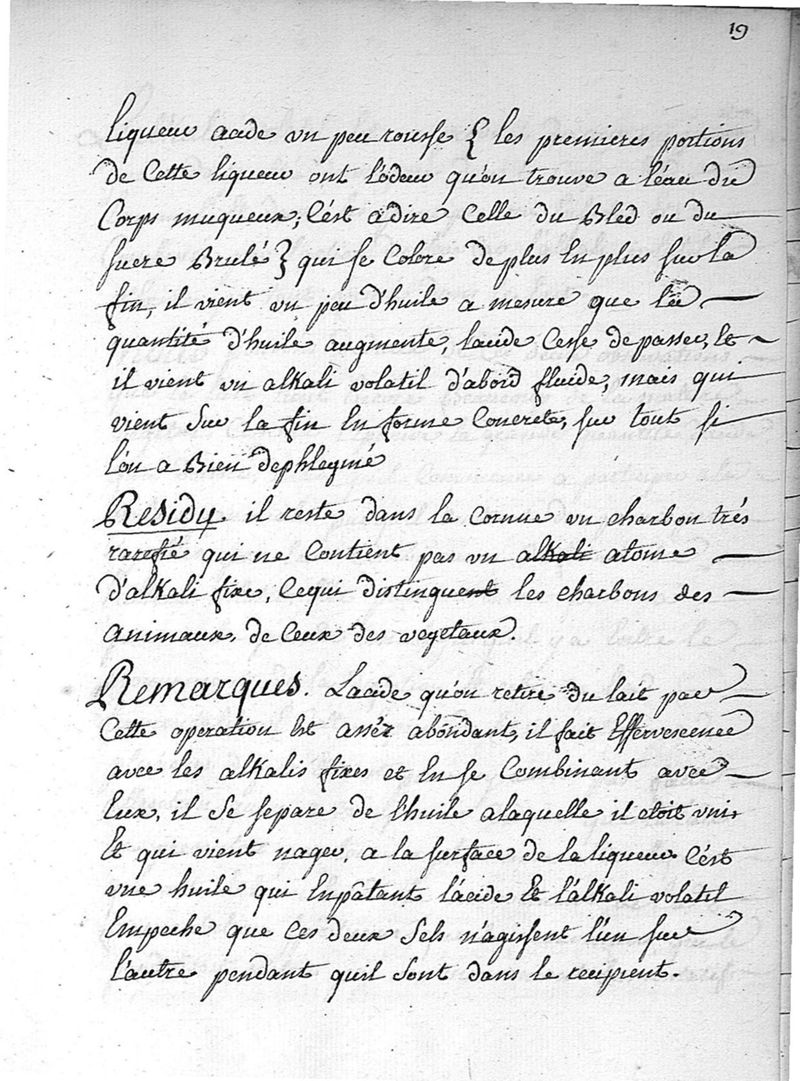 19
liqueur acide un peu rousse { les premieres portions
de Cette liqueur ont l'ôdeur qu'on trouve a l'éau du
Corps muqueux; C'ést adire Celle du Bled ou du
sucre Brulé } qui se Colore de plus En plus sur la
fin, il vient un peu d'huile a mesure que la
quantité d'huile augmente, lacide Cesse de passer, Et
il vient un alkali volatil d'abord fluide, mais qui
vient Sur la fin En forme Concrete, sur tout si
l'on a Bien dephlegmé
Residu il reste dans la cornue un charbon trés
rarefié qui ne Contient pas un alkali atome
d'alkali fixe, Cequi distinguent les charbons des
animaux, de Ceux des vegetaux.
Remarques. L'acide qu'on retire du lait par
Cette operation Est assés abondant, il fait Effervescence
avec les alkalis fixes et En se Combinant avec
Eux, il se separe de l'huile alaquelle il etoit uni,
Et qui vient nager, a la surface de la liqueur. C'ést
une huile qui Enpâtant l'acide Et l'alkali volatil
Empeche que Ces deux Sels n'agissent l'un sur
l'autre pendant quil sont dans le recipient.